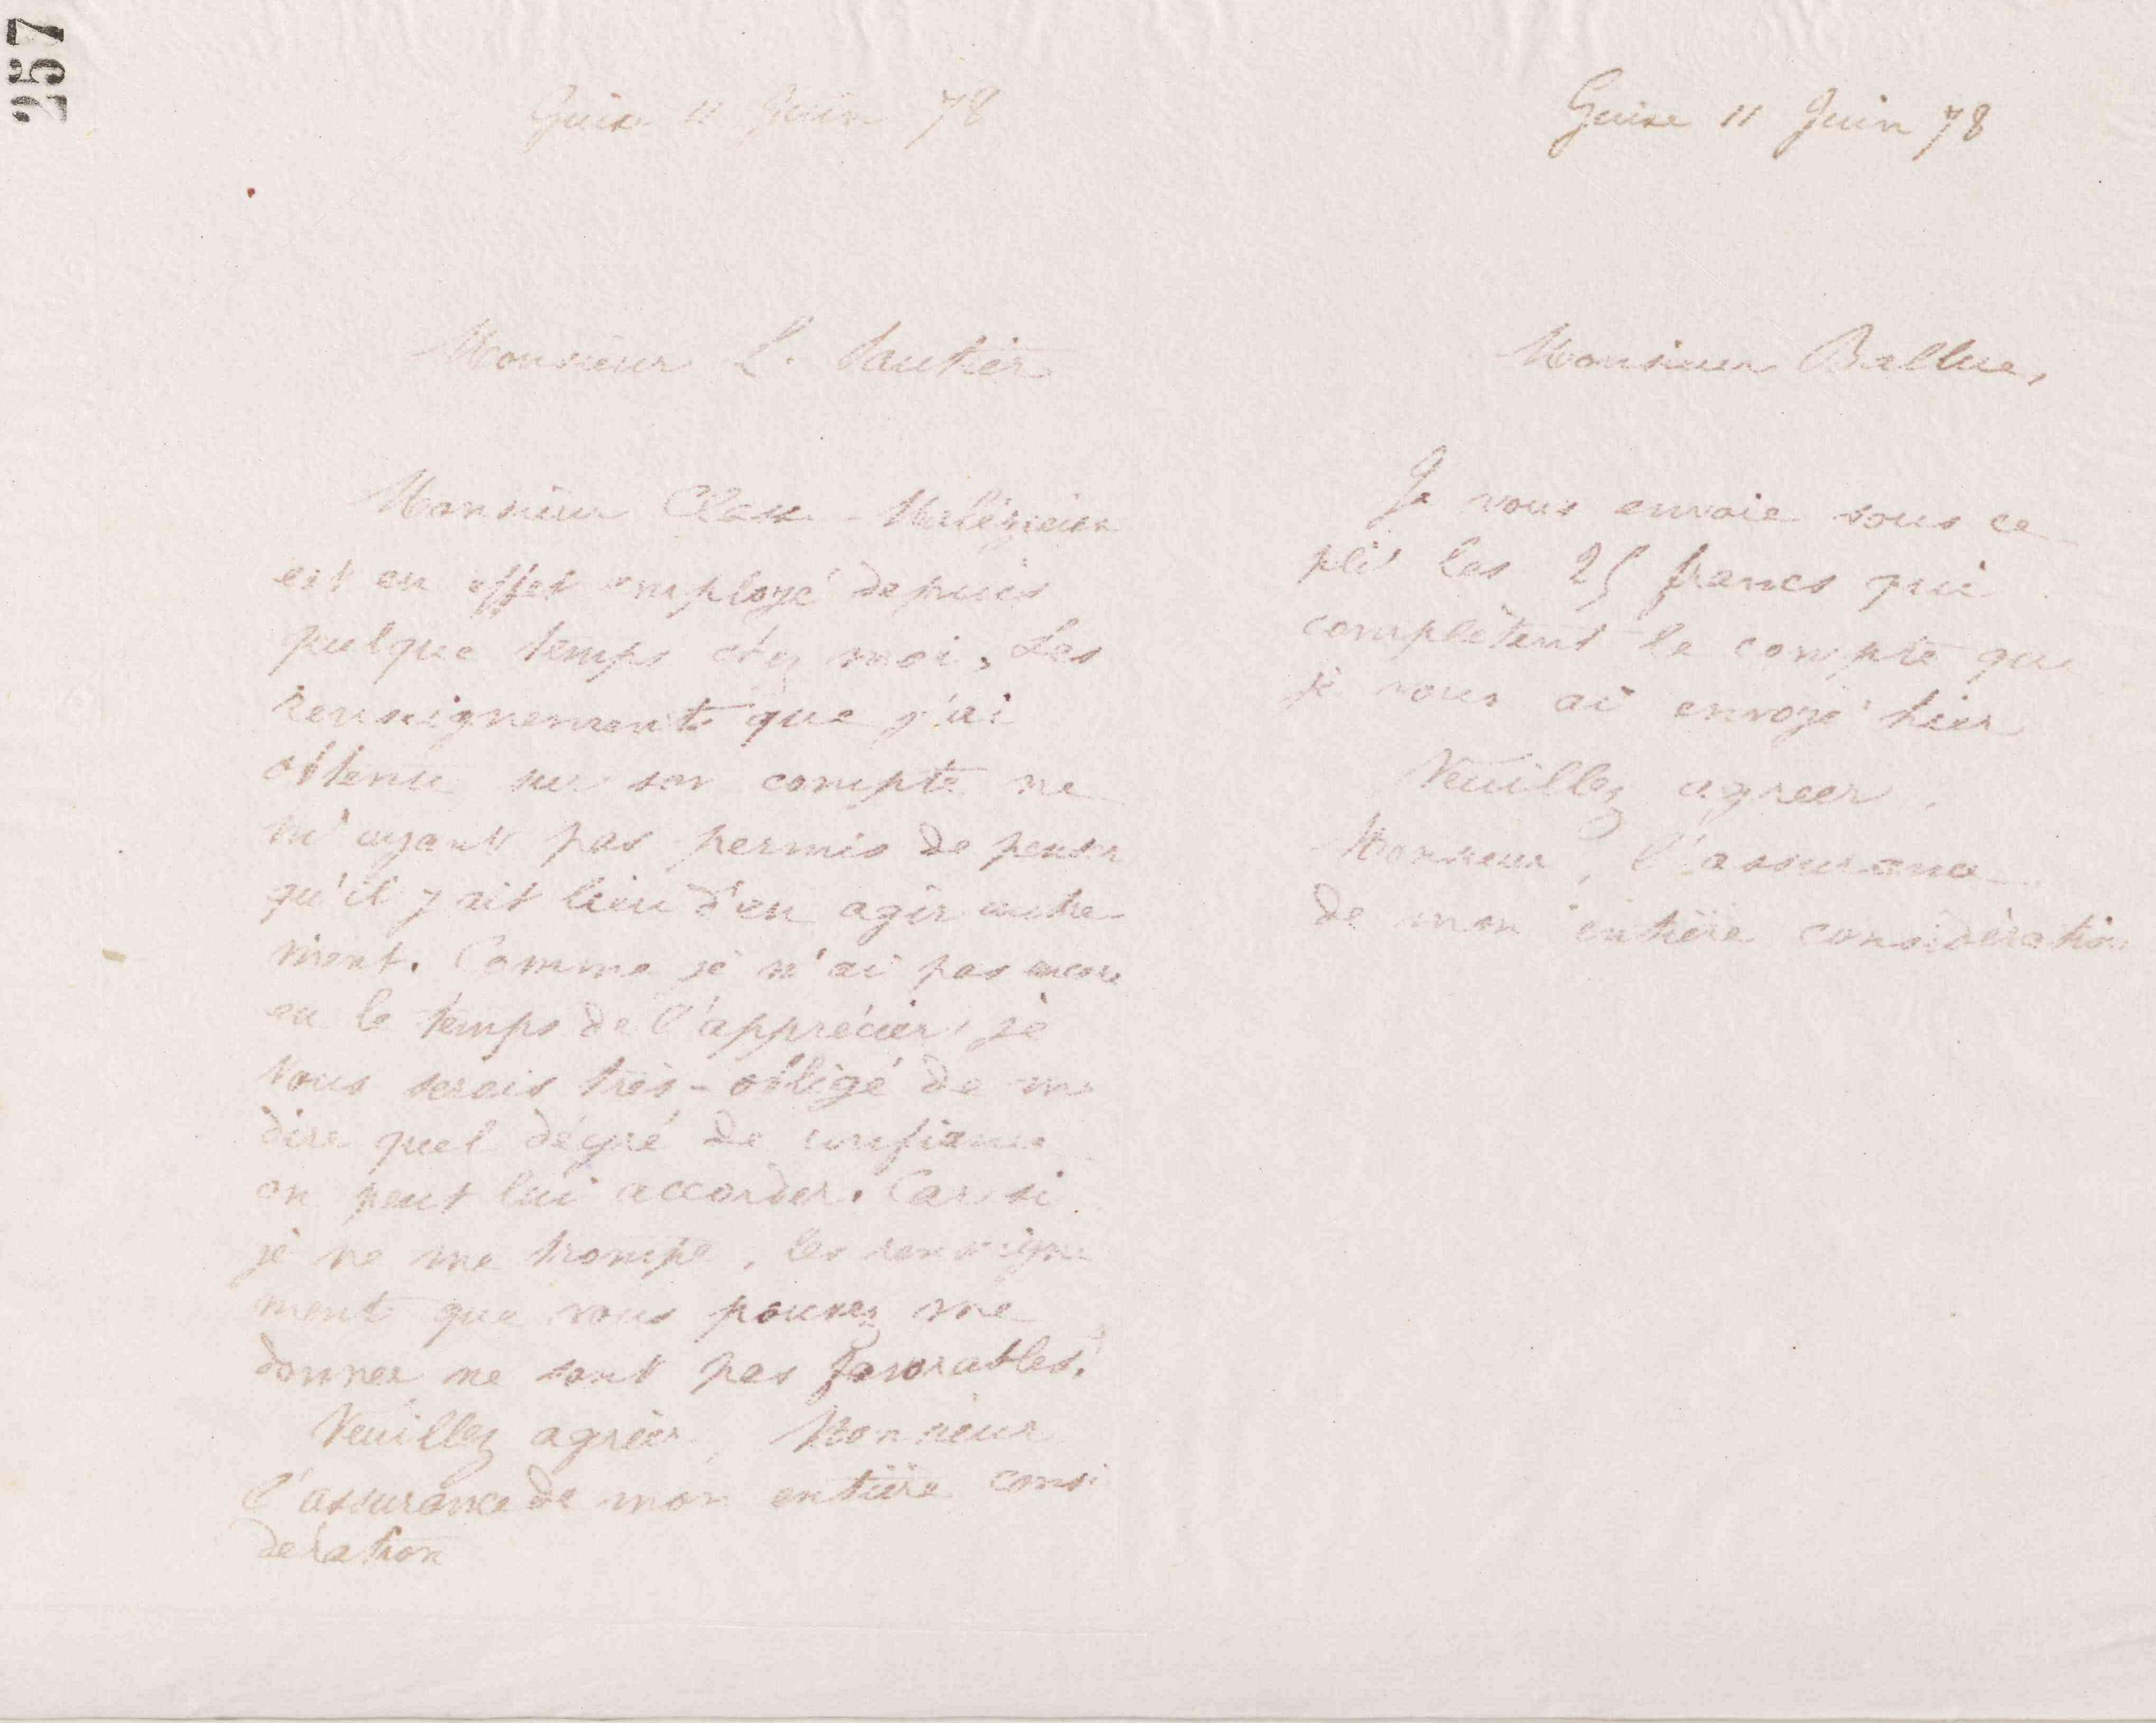 257
Guise 11 Juin 78
Monsieur L. Sautier
Monsieur Malézieux
est en effet employé depuis
quelque temps chez moi, Les
renseignements que j'ai
obtenu sur son compte ne
m'ayant pas permis de penser
qu'il y ait lieu d'en agir autre
ment. Comme je n'ai pas encore
eu le temps de l'apprécier, je
vous serais très-obligé de me
dire quel dégré de confiance
on peut lui accorder. Car si
je ne me trompe, les renseigne
ments que vous pouvez me
donner ne sont pas favorables.
Veuillez agréer, Monsieur
l'assurance de mon entière consi
dération
Guise 11 Juin 78
Monsieur Ballue,
Je vous envoie sous ce
pli les 25 francs qui
complètent le compte que
je vous ai envoyé hier
Veuillez agreer,
Monsieur, l'assurance
de mon entière considération